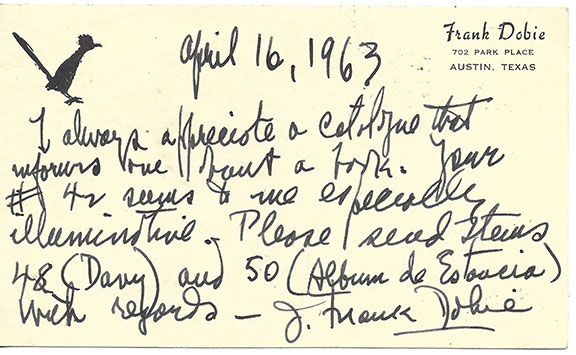 Frank Dobie
702 PARK PLACE
AUSTIN, TEXAS
April 16, 1963
I always appreciate a catalogue that
informs me about a book. Your
# 42 seems to me especially
illuminative. Please send Items
48 (Davy) and 50 (Album de Estancia)
With regards — J. Frank Dobie